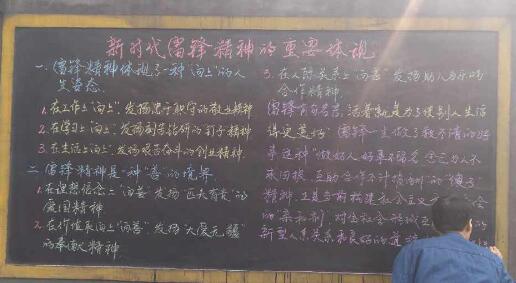 新时代雷锋精神的重要体现
一、雷锋精神体现了一种"向上"的人
生姿态.
1.在工作上"向上",发扬忠于职守的敬业精神
2.在学习上"向上",发扬刻苦钻研的钉子精神
3.在生活上"向上"发扬艰苦奋斗的创业精神.
二 雷锋精神是一种"善"的境界
1.在理想信念上"向善"发扬"匹夫有责"的
爱国精神
2.在价值取向上"向善",发扬"大爱无疆"
的奉献精神
3.在人际关系上"向善"发扬助人为乐的
合作精神.
雷锋有句名言,活着就是为了使别人生活
得更美好.雷锋一生做了数不清的好
事这种"做好人好事不留名 舍己为人不
求回报 互助合作不计
精神.正是当前构建社会主义 会
的 对全社会形成
新型人际关系和良好的道